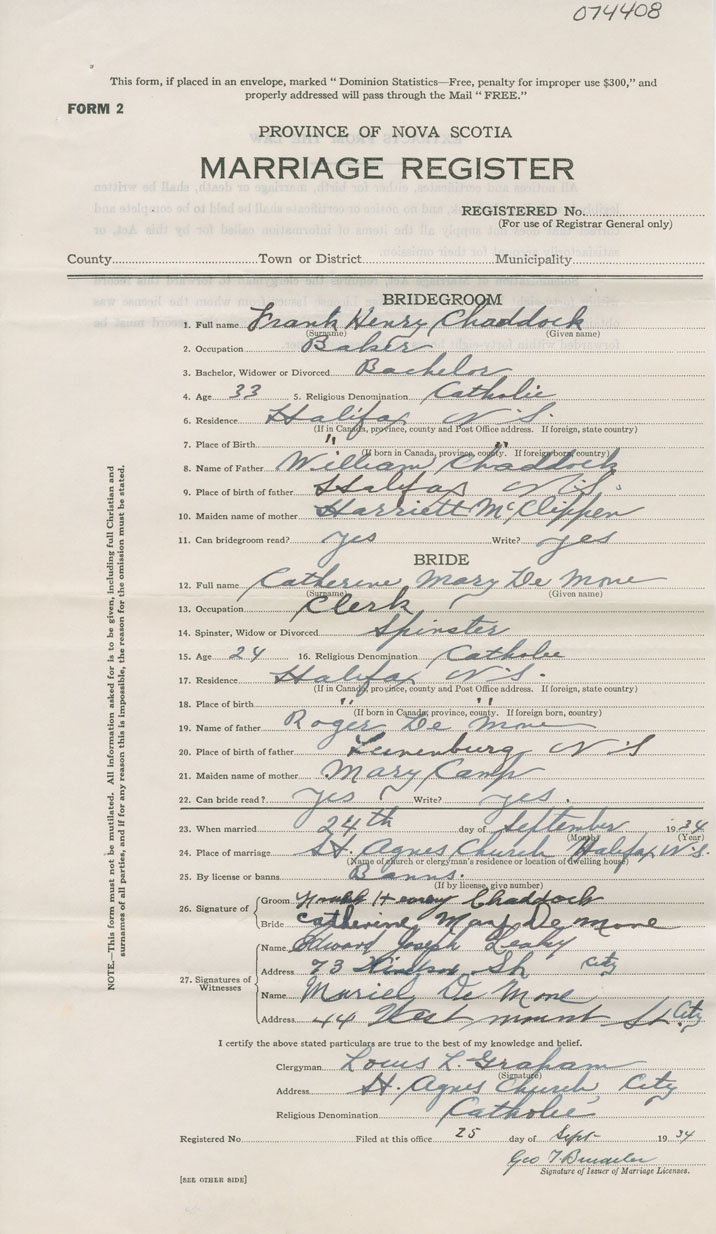 074408
This form, if placed in an envelope, marked "Dominion Statistics—Free, penalty for improper use $300," and
properly addressed will pass through the Mail "FREE."
FORM 2
PROVINCE OF NOVA SCOTIA
MARRIAGE REGISTER
REGISTERED No.
(For use of Registrar General only)
County Town or District Municipality
BRIDEGROOM
1. Full name Frank Henry Chaddock
(Surname) (Given name)
2. Occupation Baker
3. Bachelor, Widower or Divorced Bachelor
4. Age 33 5. Religious Denomination Catholic
6. Residence Halifax N.S.
(If in Canada, province, county and Post Office address. If foreign, state country)
7. Place of Birth " "
(If born in Canada, province, county. If foreign born, country)
8. Name of Father William Chaddock
9. Place of birth of father Halifax N.S.
10. Maiden name of mother Harriett McClippen
11. Can bridegroom read? yes Write? yes
BRIDE
12. Full name Catherine Mary De Mone
(Surname) (Given name)
13. Occupation Clerk
14. Spinster, Widow or Divorced Spinster
15. Age 24 16. Religious Denomination Catholic
17. Residence Halifax N.S.
(If in Canada, province, county and Post Office address. If foreign, state country)
18. Place of birth " "
(If born in Canada, province, county. If foreign born, country)
19. Name of father Roger De Mone
20. Place of birth of father Lunenburg N S
21. Maiden name of mother Mary Camp
22. Can bride read? yes Write? yes.
23. When married 24th day of September 1934
(Month) (Year)
24. Place of marriage St. Agnes Church Halifax N.S.
(Name of church or clergyman's residence or location of dwelling house)
25. By license or banns Banns.
(If by license, give number)
26. Signature of Groom Frank Henry Chaddock
Bride Catherine Mary De Mone
27. Signatures of Witnesses
Name Edward Joseph Leahy
Address 73 Windsor St. City
Name Muriel De Mone
Address 44 West mount St. City
I certify the above stated particulars are true to the best of my knowledge and belief.
Clergyman Louis L. Graham
(Signature)
Address St. Agnes Church City
Religious Denomination Catholic
Registered No. Filed at this office 25 day of Sept 1934
Geo T
Signature of Issuer of Marriage Licenses.
[SEE OTHER SIDE]
NOTE.—This form must not be mutilated. All information asked for is to be given, including full Christian and
surnames of all parties, and if for any reason this is impossible, the reason for the omission must be stated.